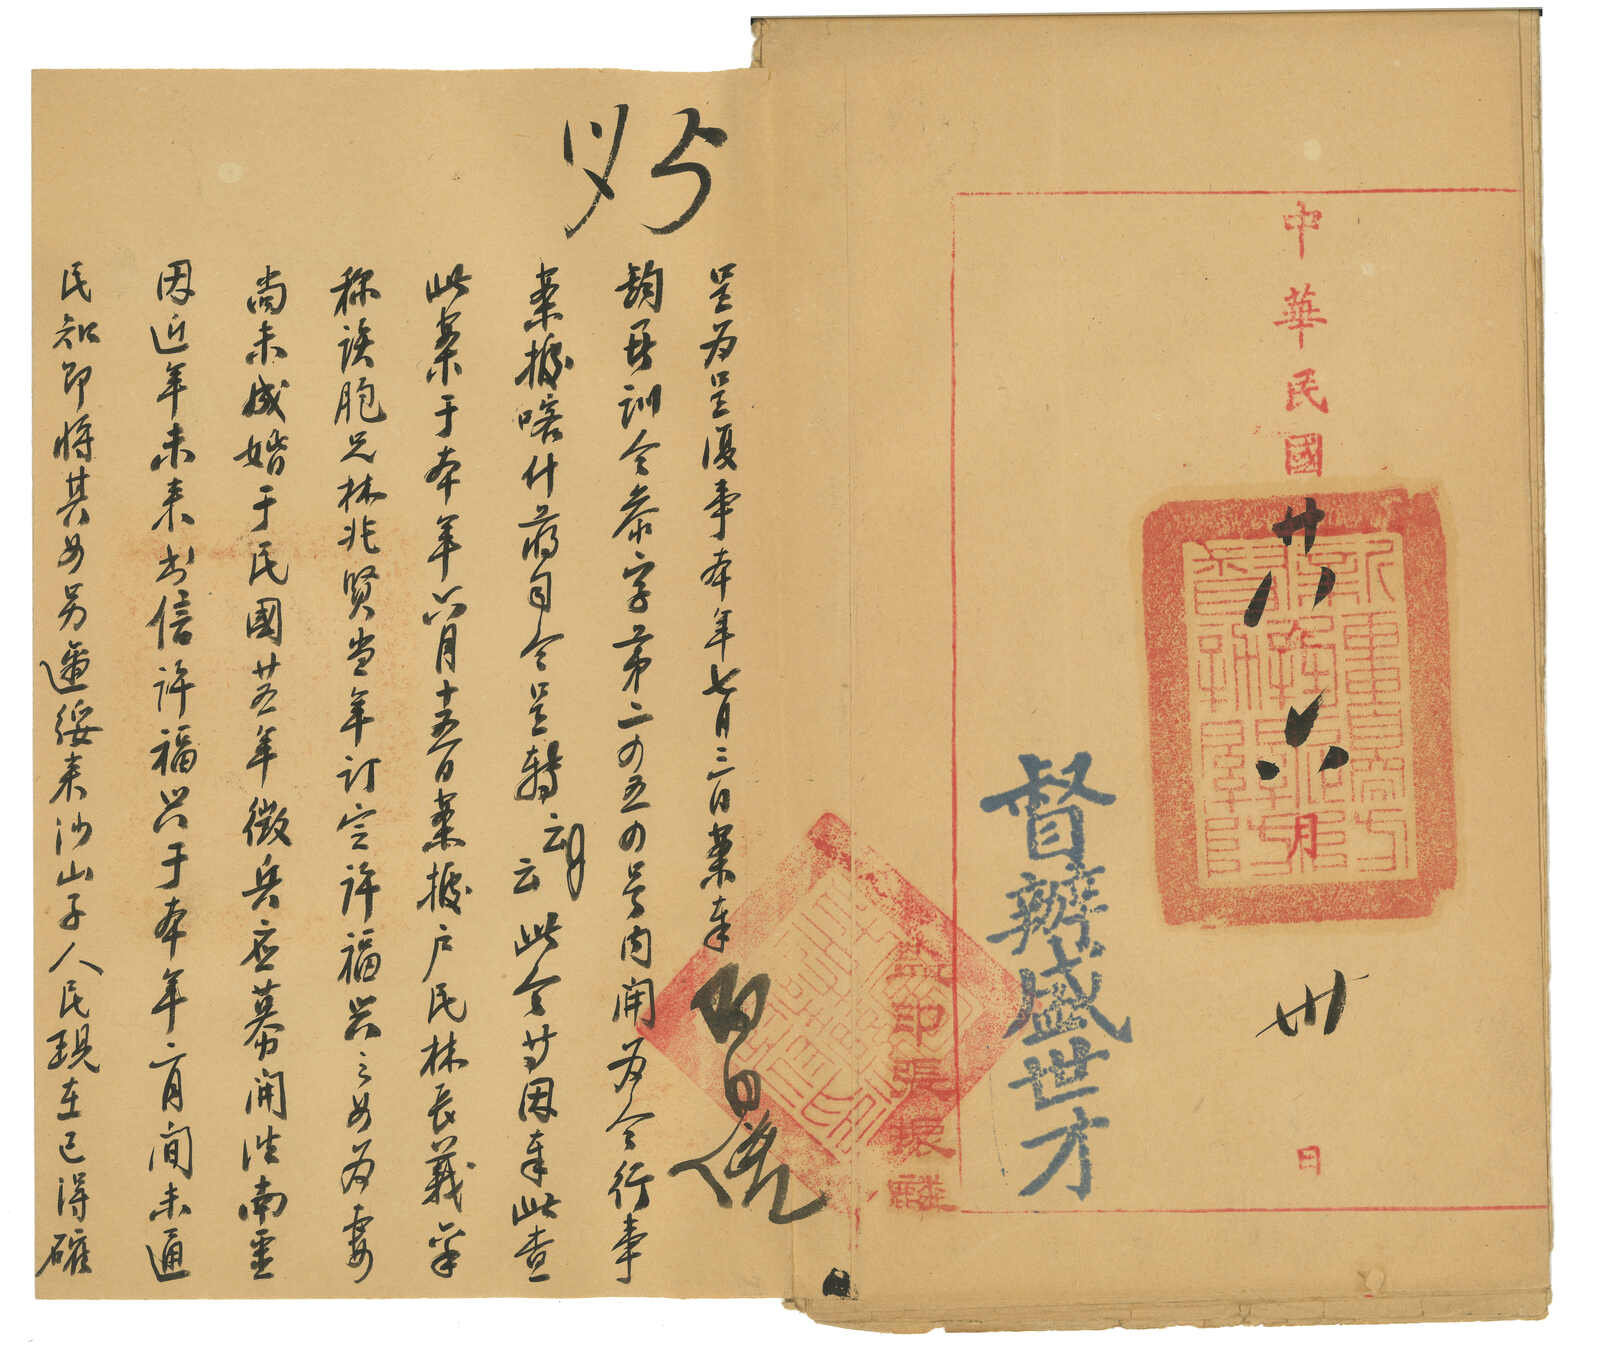 中華民國廿八六月卅日
督辦盛世才
監印張振麟
呈为呈復事本年七月三日案奉
鈞署訓令泰字第二〇五〇号内開为令行事
案據喀什蒋司令呈轉云云此令等因奉此查
此案于本年六月十五日案據户民林長義呈
称该胞兄林兆贤当年订定许福兴之女为妻
尚未成婚于民國廿五年徵兵应募開往南疆
因近年未来書信许福兴于本年二月间未通
民知即将其女另適绥来沙山子人民現在已得確